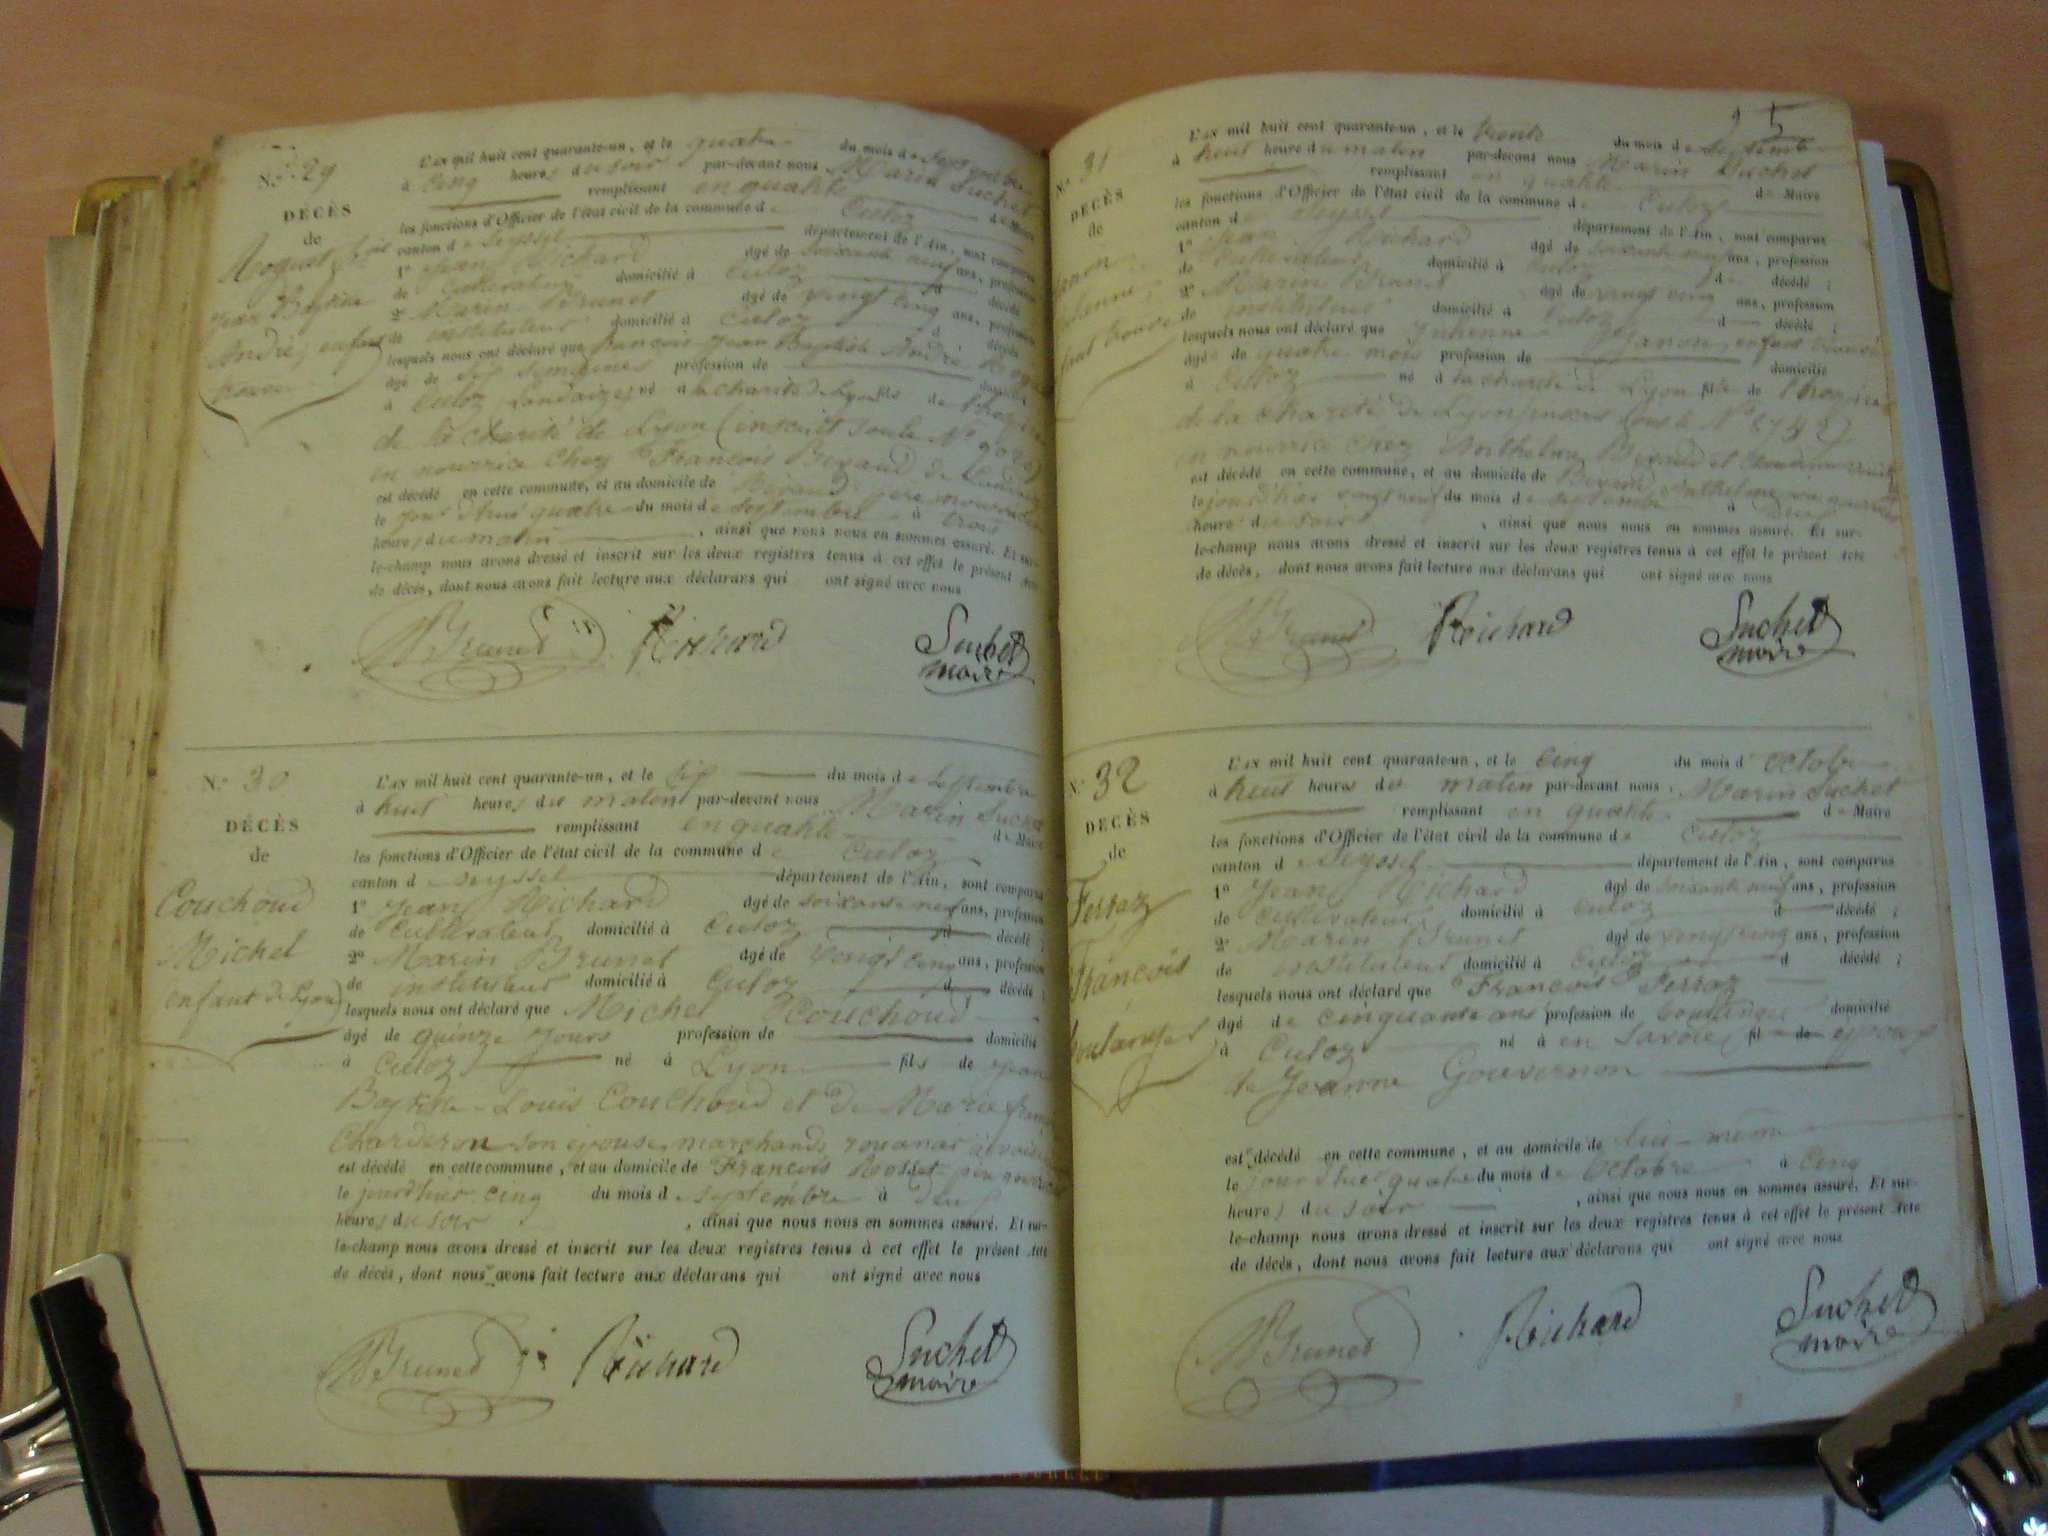 N.º 29
DÉCÈS
de
Roguet
Jean Baptiste
André, enfant
trouvé
L'an mil huit cent quarante-un, et le quatre du mois de septembre
à cinq heures du soir par-devant nous Marin Suchet
remplissant en qualité de Maire
les fonctions d'Officier de l'état civil de la commune de Culoz
canton de Seyssel département de l'Ain, sont comparus
1º Jean Richard âgé de soixante neuf ans, profession
de cultivateur domicilié à Culoz d décédé
2º Marin Brunet âgé de vingt cinq ans, profession
de instituteur domicilié à Culoz d décédé
lesquels nous ont déclaré que François Jean Baptiste André Roguet
âgé de six semaines profession de domicilié
à Culoz (Landaize) né à la charité de Lyon fils de l'hospice
de la charité de Lyon (inscrit sous le Nº
en nourrice chez François Beraud de Landaize
est décédé en cette commune, et au domicile de Beraud père nourricier
le jourd'hui quatre du mois de septembre à trois
heures du matin, ainsi que nous nous en sommes assuré. Et sur-
le-champ nous avons dressé et inscrit sur les deux registres tenus à cet effet le présent acte
de décès, dont nous avons fait lecture aux déclarans qui ont signé avec nous
M Brunet Richard Suchet
maire
N.º 30
DÉCÈS
de
Couchoud
Michel
enfant de Lyon
L'an mil huit cent quarante-un, et le six du mois de septembre
à huit heures du matin par-devant nous Marin Suchet
remplissant en qualité de Maire
les fonctions d'Officier de l'état civil de la commune de Culoz
canton de Seyssel département de l'Ain, sont comparus
1º Jean Richard âgé de soixante neuf ans, profession
de cultivateur domicilié à Culoz d décédé ;
2º Marin Brunet âgé de vingt cinq ans, profession
de instituteur domicilié à Culoz d décédé ;
lesquels nous ont déclaré que Michel Couchoud
âgé de quinze jours profession de domicilié
à Culoz né à Lyon fils de Jean
Baptiste Louis Couchoud et de Marie
Charderon son épouse marchands
est décédé en cette commune, et au domicile de François Rosset père nourricier
le jourd'hier cinq du mois de septembre à deux
heures du soir, ainsi que nous nous en sommes assuré. Et sur-
le-champ nous avons dressé et inscrit sur les deux registres tenus à cet effet le présent acte
de décès, dont nous avons fait lecture aux déclarans qui ont signé avec nous
M Brunet Richard Suchet
maire
25
N.º 31
DÉCÈS
de
Janon
Julienne
enfant trouvé
L'an mil huit cent quarante-un, et le trente du mois de septembre
à huit heure du matin par-devant nous Marin Suchet
remplissant en qualité de Maire
les fonctions d'Officier de l'état civil de la commune de Culoz
canton de Seyssel département de l'Ain, sont comparus
1º Jean Richard âgé de soixante neuf ans, profession
de cultivateur domicilié à Culoz d décédé ;
2º Marin Brunet âgé de vingt cinq ans, profession
de instituteur domicilié à Culoz d décédé ;
lesquels nous ont déclaré que Julienne Janon, enfant trouvé
âgée de quatre mois profession de domicilié
à Culoz né à la charité de Lyon fille de l'hospice
de la charité de Lyon sous le Nº
en nourrice chez Anthelme Beraud et
est décédé en cette commune, et au domicile de Beraud Anthelme
le jourd'hier vingt neuf du mois de septembre à deux
heures du soir, ainsi que nous nous en sommes assuré. Et sur-
le-champ nous avons dressé et inscrit sur les deux registres tenus à cet effet le présent acte
de décès, dont nous avons fait lecture aux déclarans qui ont signé avec nous
M Brunet Richard Suchet
maire
N.º 32
DÉCÈS
de
Ferraz
François
boulanger
L'an mil huit cent quarante-un, et le cinq du mois d'octobre
à huit heures du matin par-devant nous Marin Suchet
remplissant en qualité de Maire
les fonctions d'Officier de l'état civil de la commune de Culoz
canton de Seyssel département de l'Ain, sont comparus
1º Jean Richard âgé de soixante neuf ans, profession
de cultivateur domicilié à Culoz d décédé ;
2º Marin Brunet âgé de vingt cinq ans, profession
de instituteur domicilié à Culoz d décédé ;
lesquels nous ont déclaré que François Ferraz
âgé de cinquante ans profession de boulanger domicilié
à Culoz né à en Savoie fil de époux
de Jeanne Gouvernon
est décédé en cette commune, et au domicile de lui-même
le jourd'hier quatre du mois de octobre à cinq
heures du soir, ainsi que nous nous en sommes assuré. Et sur-
le-champ nous avons dressé et inscrit sur les deux registres tenus à cet effet le présent acte
de décès, dont nous avons fait lecture aux déclarans qui ont signé avec nous
M Brunet Richard Suchet
maire